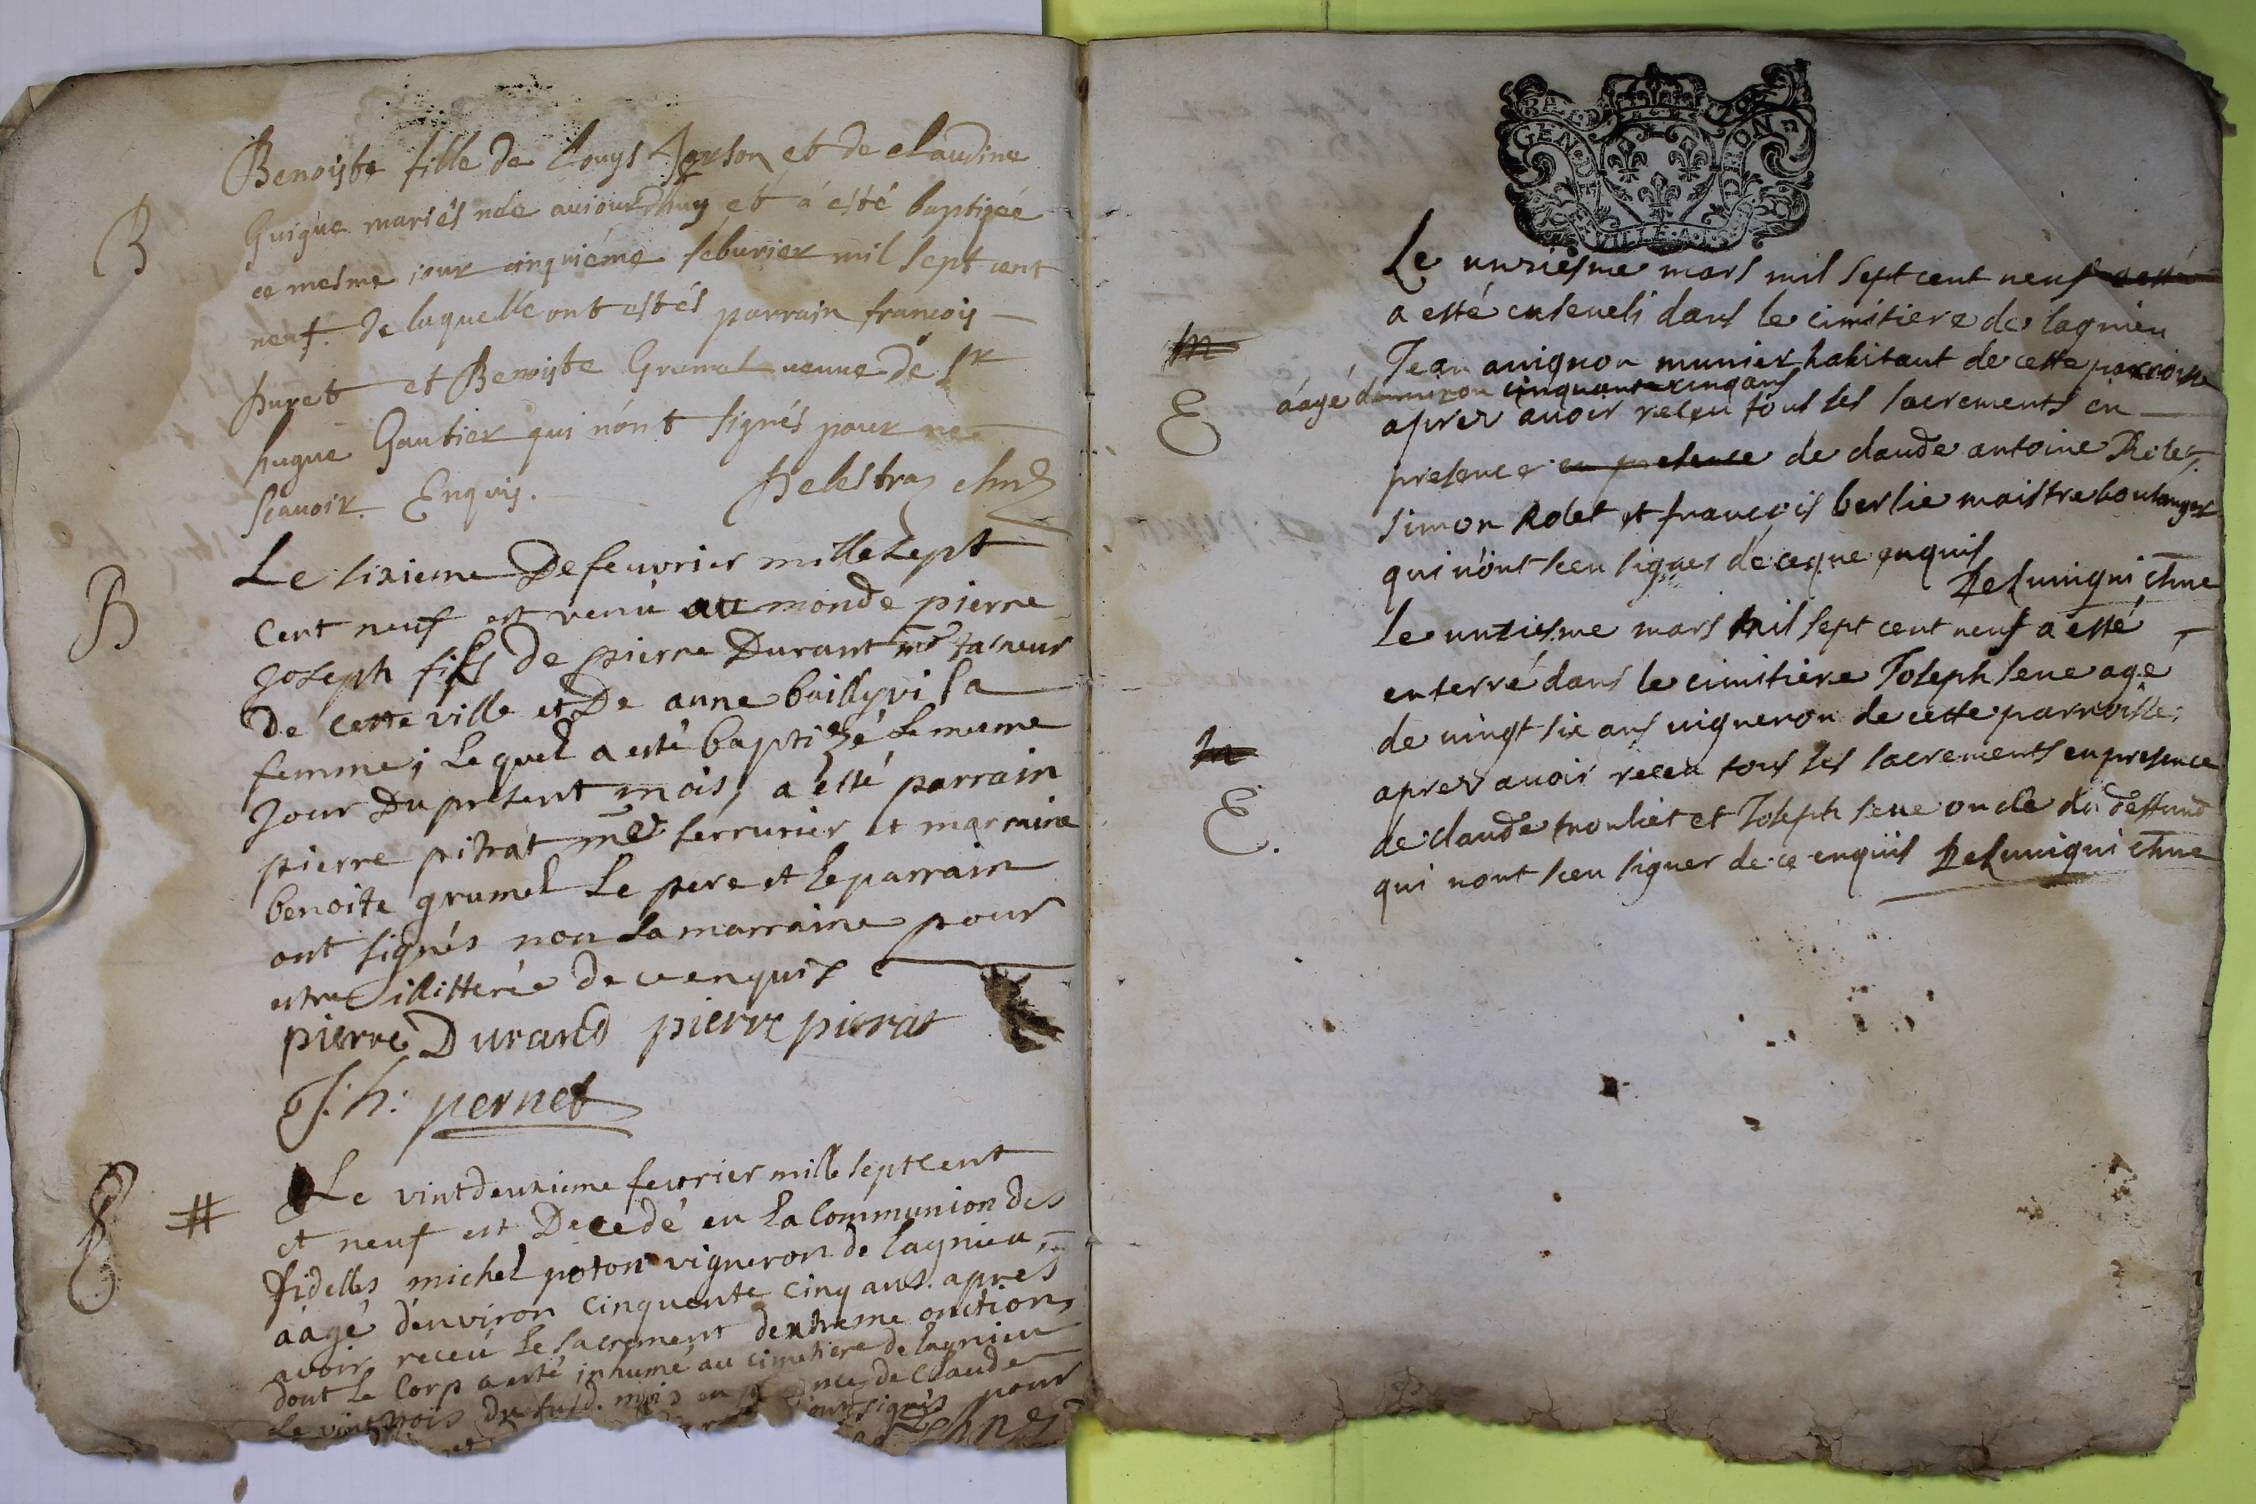 B
Benoiste fille de Louys et de claudine
Guigue mariés née aujourdhuy et á esté baptizée
ce mesme jour cinquiéme feburier mil sept cent
neuf. De laquelle ont estés parrain françois
puret et Benoiste Grumel veuve de Sr
hugue Gautier qui nónt signés pour ne
scavoir. Enquis. Delestraz
B
Le sixieme De feuvrier mille sept
cent neuf est venu au monde pierre
joseph fils de pierre Durant me
de cette ville et De anne baillyvi sa
femme; Lequel a esté baptizé le meme
jour Du present mois, a esté parrain
pierre pitrat me serrurier et marraine
benoite grumel Le pere et le parrain
ont signés non La marraine pour
estre illitterée De ce enquis
pierre Durand pierre pitrat
J: h: pernet
E #
Le vintdeuxieme feuvrier mille sept cent
et neuf est Decedé en La Communion des
fidelles michel poton vigneron de lagnieu,
áagé d'environ cinquente cinq ans. apres
avoir receú Le sacrement dextreme onction,
dont Le Corp a esté inhumé au cimetiere de lagnieu
Le vint trois Du susd. mois en de Claude
signés pour
BA GEN DE VILLE A
Le unziesme mars mil sept cent neuf a esté
a esté enseueli dans le cimitiere de lagnieu
m
Jean auignon munier habitant de cette parroisse
áagé denuiron cinquante cinq ans
E
aprez auoir receu tous les sacrements en
presence en presence de claude antoine Rolet
simon Rolet et francois berlie maistre boulanger
qui n'ont sceu signer de ce que enquis
Le unziesme mars mil sept cent neuf a esté
enterré dans le cimitiere Joseph seue agé
de uingt six ans uigneron de cette parroisse;
m
aprez auoir receu tous les sacrements en presence
E.
de claude trouliet et Joseph seue oncle du deffund
qui nont sceu signer de ce enquis